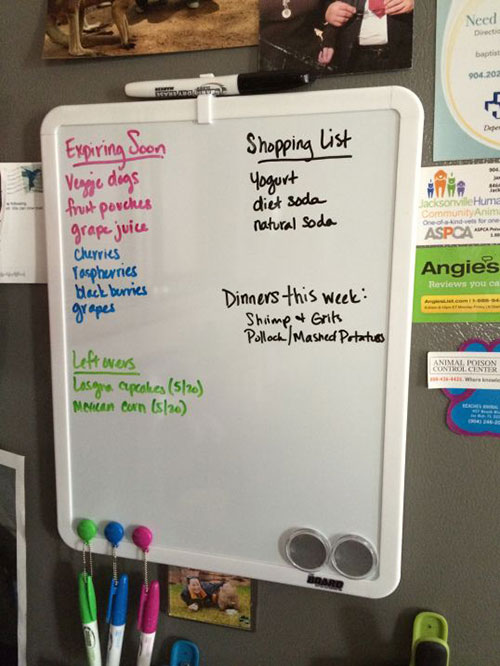 Expiring Soon
Veggie dogs
fruit pouches
grape juice
cherries
raspberries
blackberries
grapes
Leftovers
Lasagna cupcakes (5/20)
Mexican corn (5/20)
Shopping List
Yogurt
diet soda
natural soda
Dinners this week:
Shrimp & Grits
Pollock/Mashed Potatoes
BOARD
Need
baptis
904.202
Jacksonville Huma
Community Anim
One-of-a-kind-vets for one-
ASPCA
Angie's
Reviews you ca
ANIMAL POISON
CONTROL CENTER